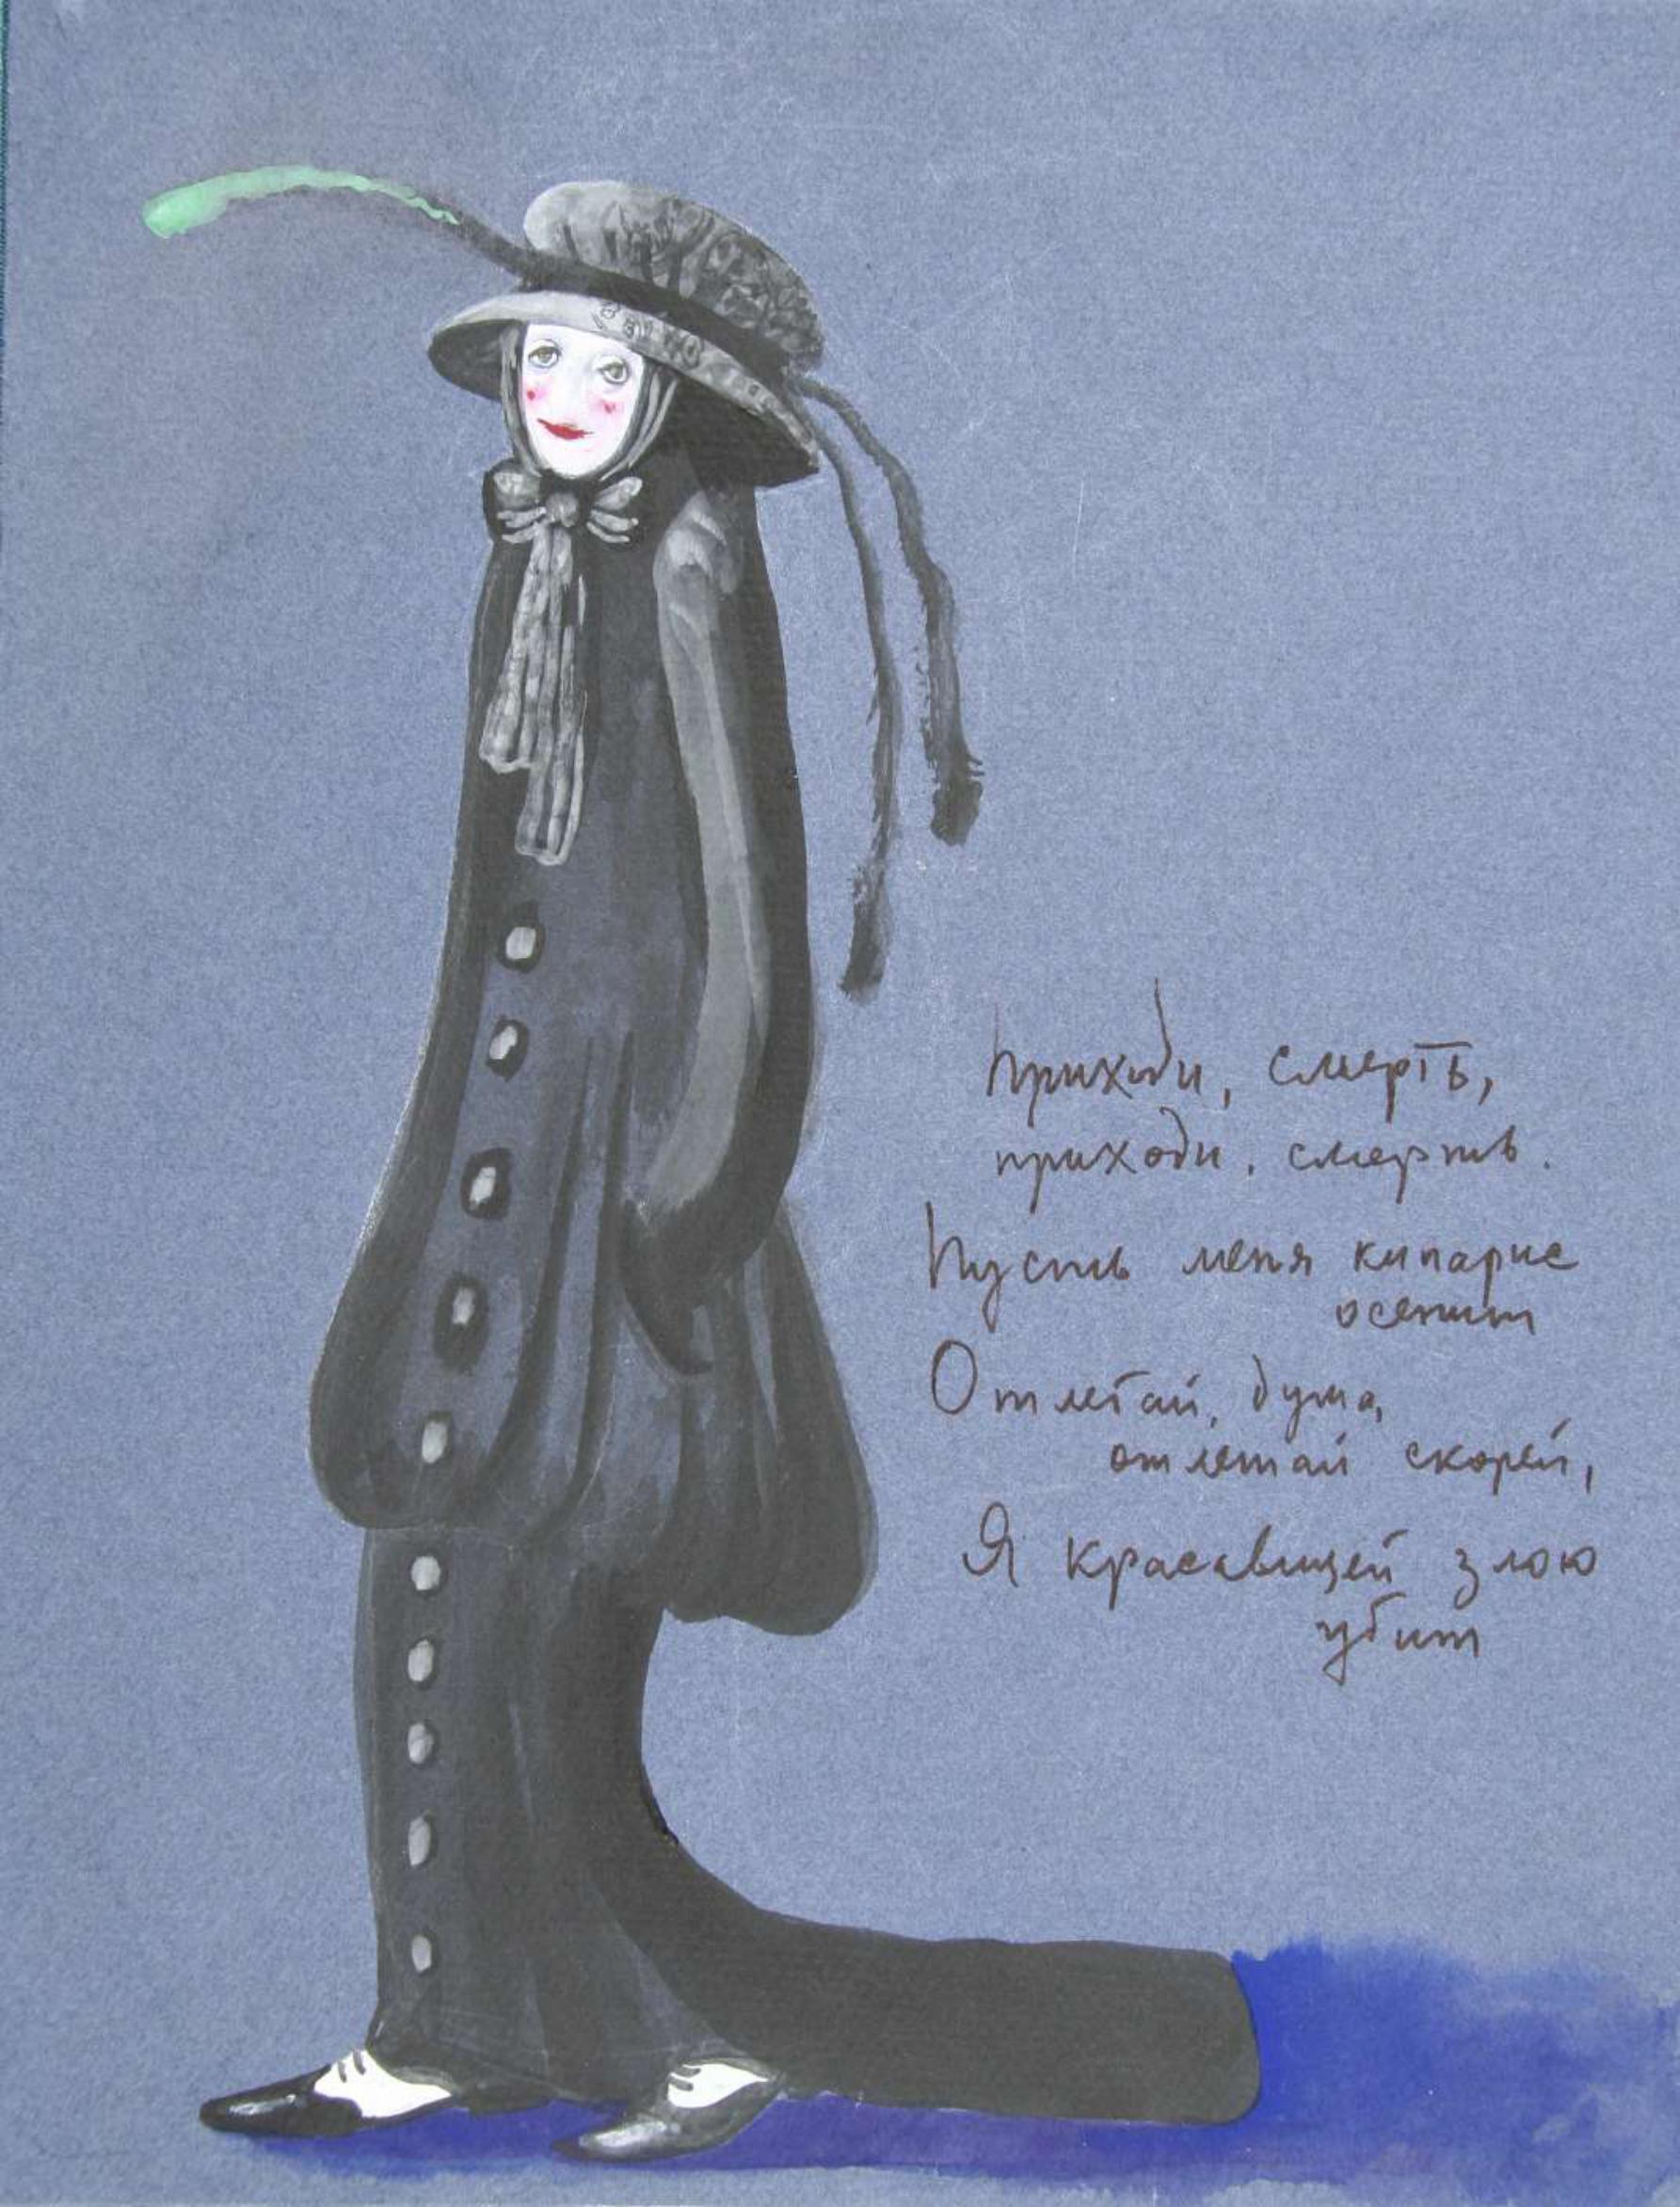 Приходи, смерть,
приходи, смерть.
Пусть меня кипарис
осенит
Отлетай, душа,
отлетай скорей,
Я красавицей злою
убит